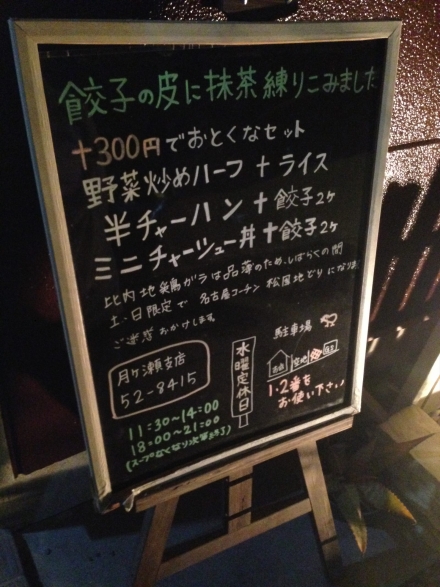 餃子の皮に抹茶練りこみました
+300円でおとくなセット
野菜炒めハーフ+ライス
半チャーハン+餃子2ヶ
ミニチャーシュー丼+餃子2ヶ
比内地鶏ガラは品薄のため、しばらくの間
土・日限定で 名古屋コーチン 松風地どりになります
ご迷惑おかけします
駐車場
月ヶ瀬支店
52-8415
水曜定休日
空地
1・2番を
お使い下さい
11:30~14:00
18:00~21:00
(スープなくなり次第終了)